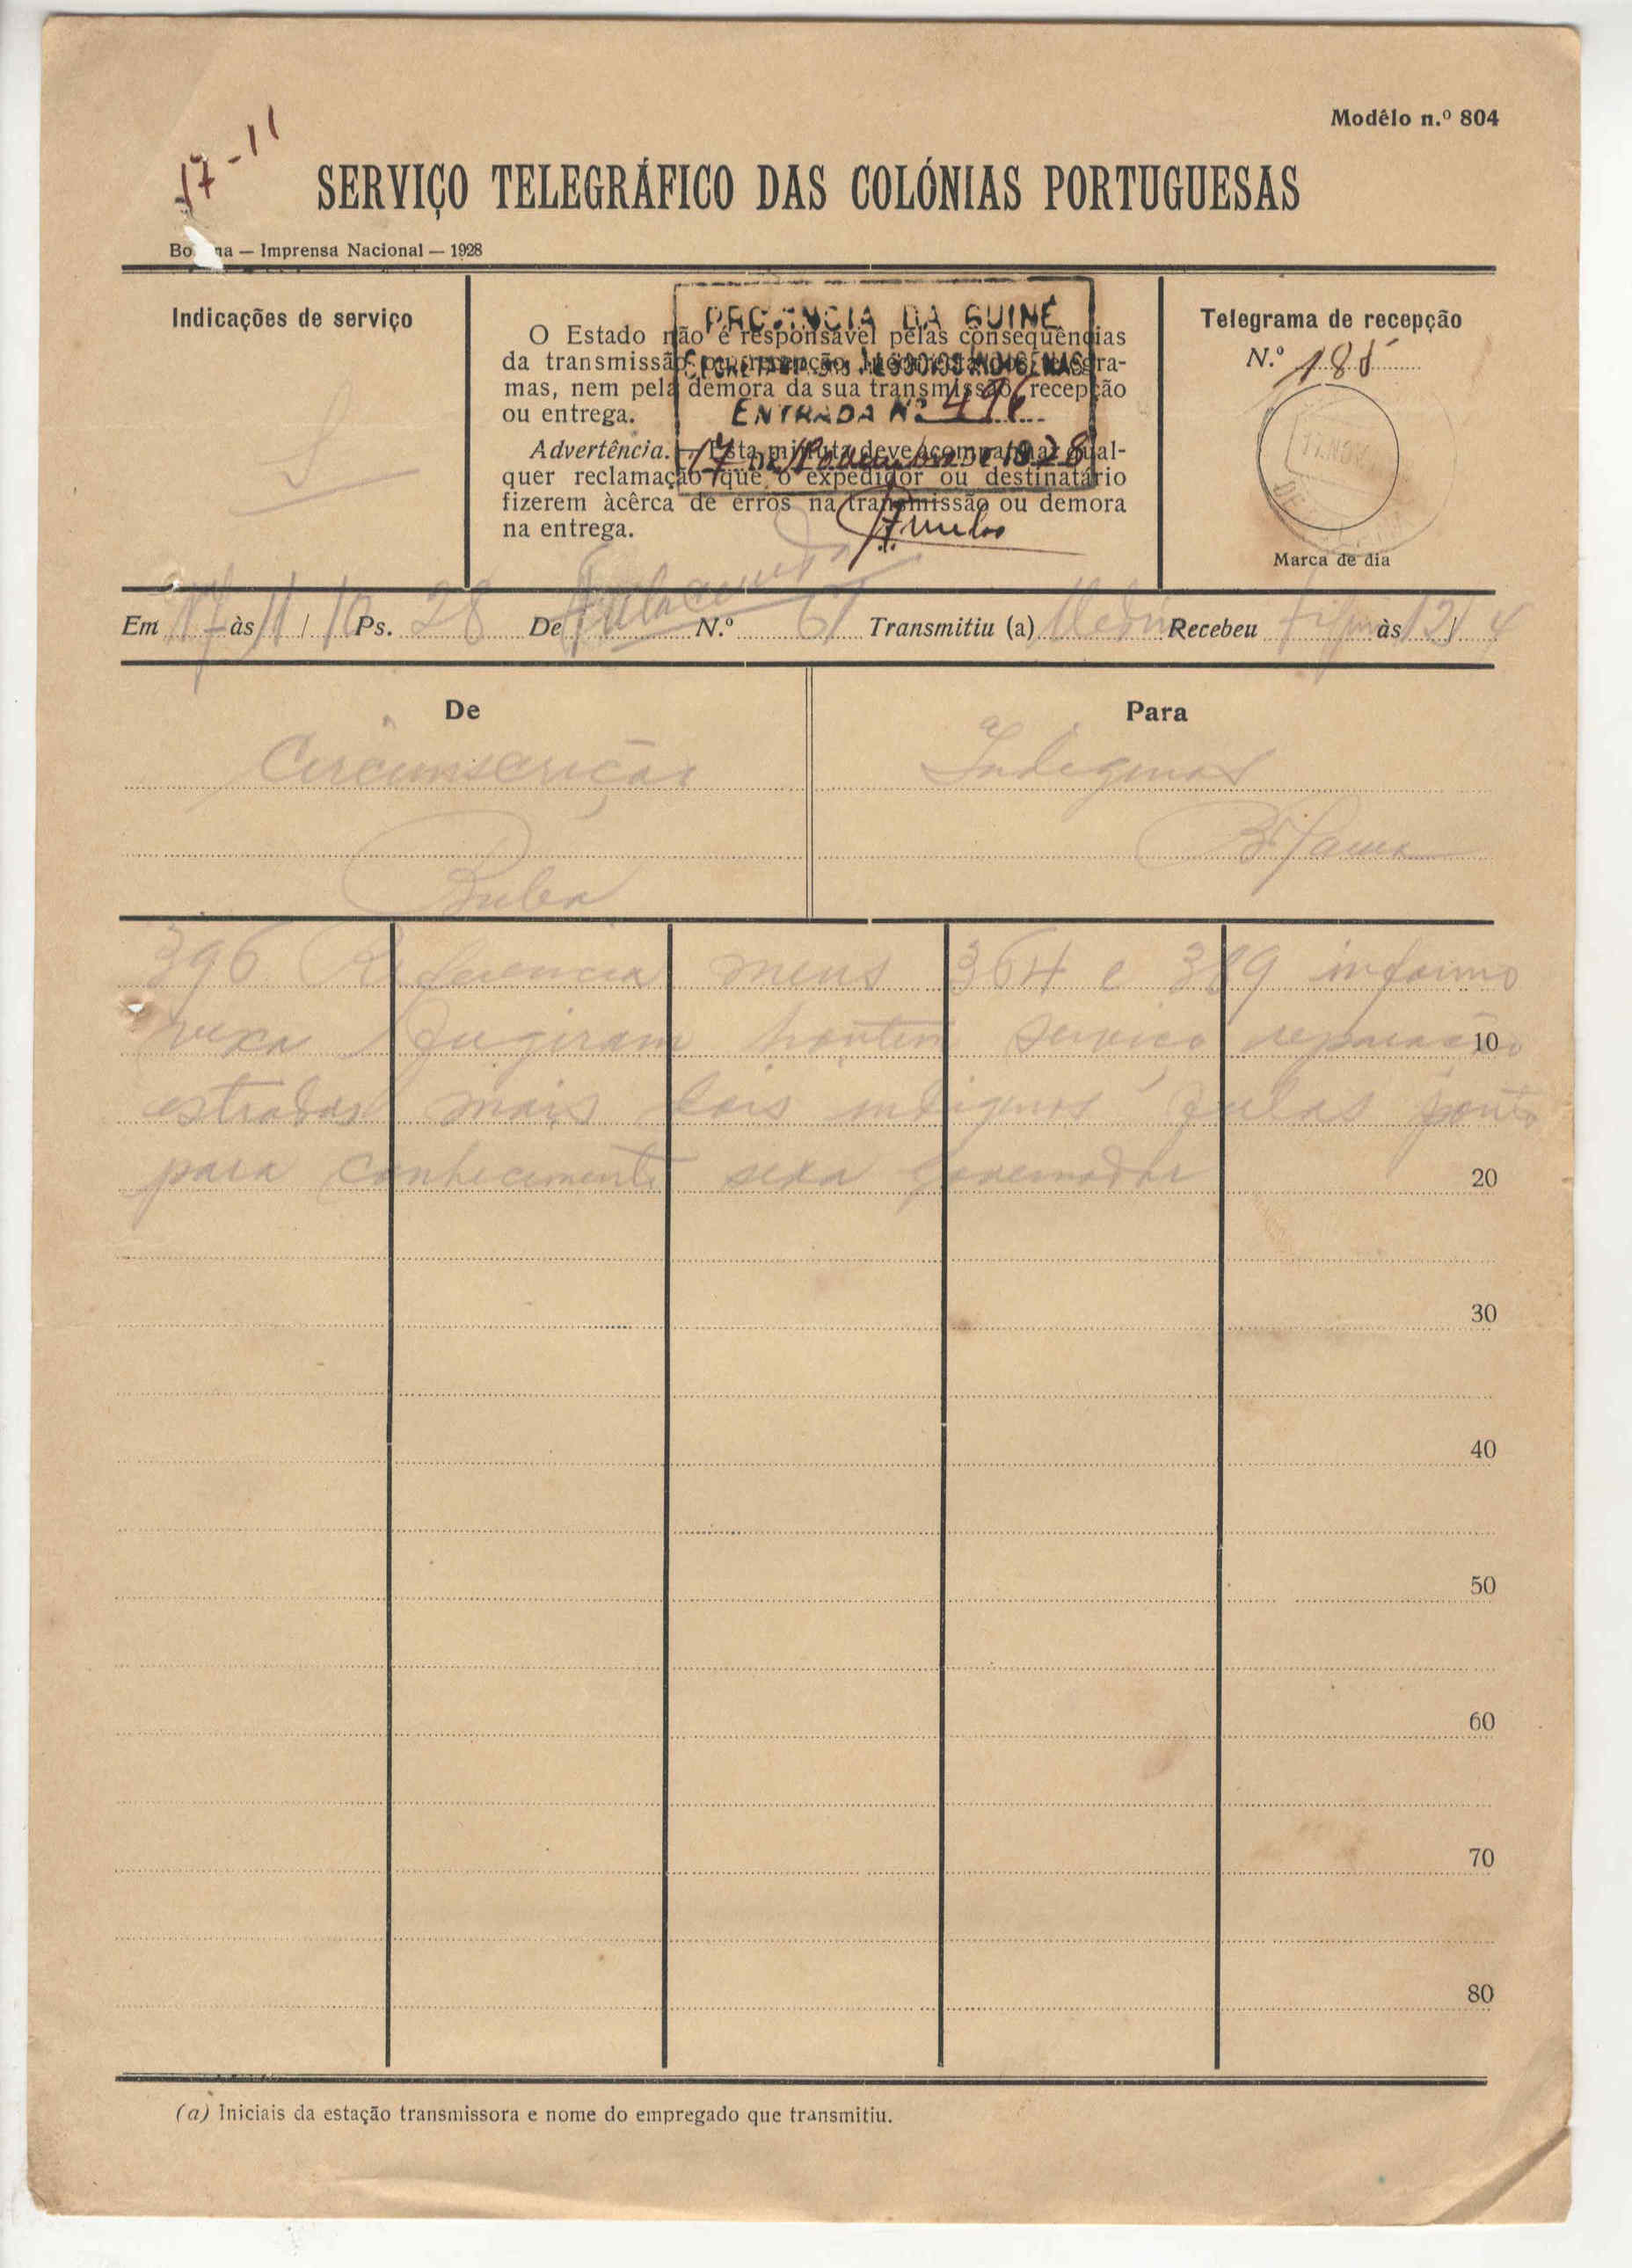 17-11
Modêlo n.º 804
SERVIÇO TELEGRÁFICO DAS COLÓNIAS PORTUGUESAS
Bo na — Imprensa Nacional — 1928
Indicações de serviço
S
O Estado não é responsável pelas consequências
da transmissão ra-
mas, nem pela demora da sua transmissão, recepção
ou entrega.
Advertência. — Esta minuta deve acompanhar qual-
quer reclamação que o expedidor ou destinatário
fizerem àcêrca de erros na transmissão ou demora
na entrega.
PROVINCIA DA GUINÉ
NEGOCIOS INDIGENAS
ENTRADA Nº 496
17 de Novembro de 1928
Telegrama de recepção
N.º 185
17.NOV
Marca de dia
Em 17 às 11/10 Ps. 28 De Fulacunda N.º 61 Transmitiu (a) Recebeu às 12/4
De
Circunscrição
Buba
Para
Indigenas
Bolama
396 Referencia meus 364 e 389 informo
vexa fugiram hontem serviço reparação 10
estradas mais dois indigenas fulas ponto
para conhecimento sexa governador 20
30
40
50
60
70
80
(a) Iniciais da estação transmissora e nome do empregado que transmitiu.